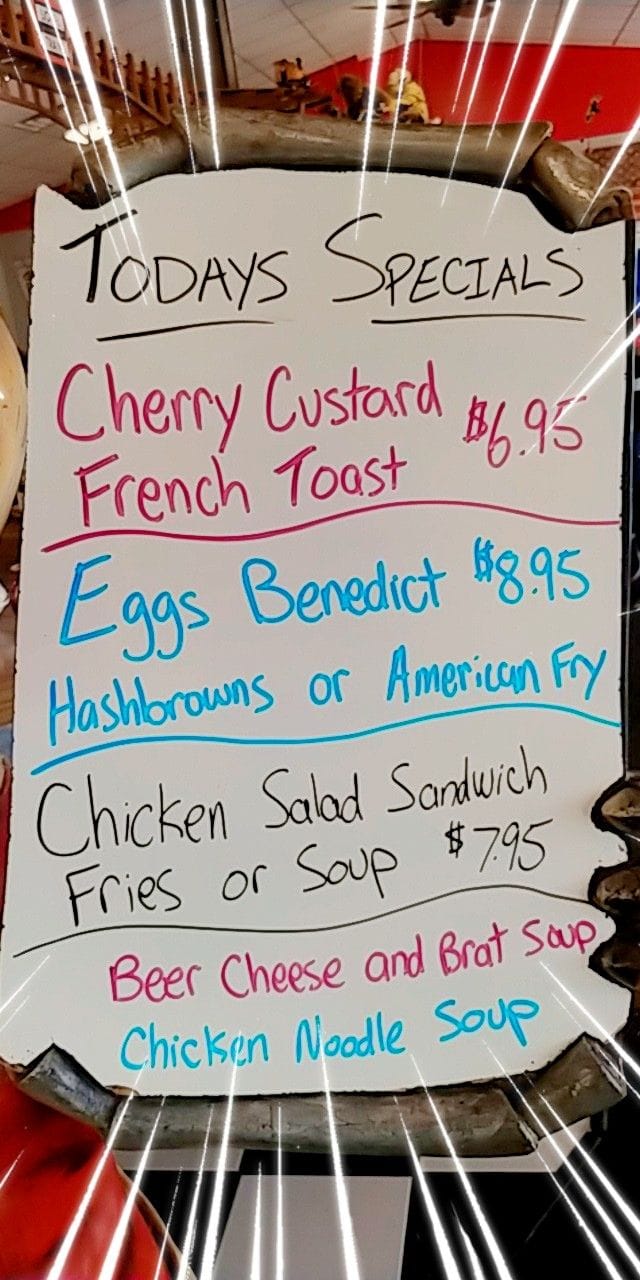 TODAYS SPECIALS
Cherry Custard $6.95
French Toast
Eggs Benedict $8.95
Hashbrowns or American Fry
Chicken Salad Sandwich
Fries or Soup $7.95
Beer Cheese and Brat Soup
Chicken Noodle Soup